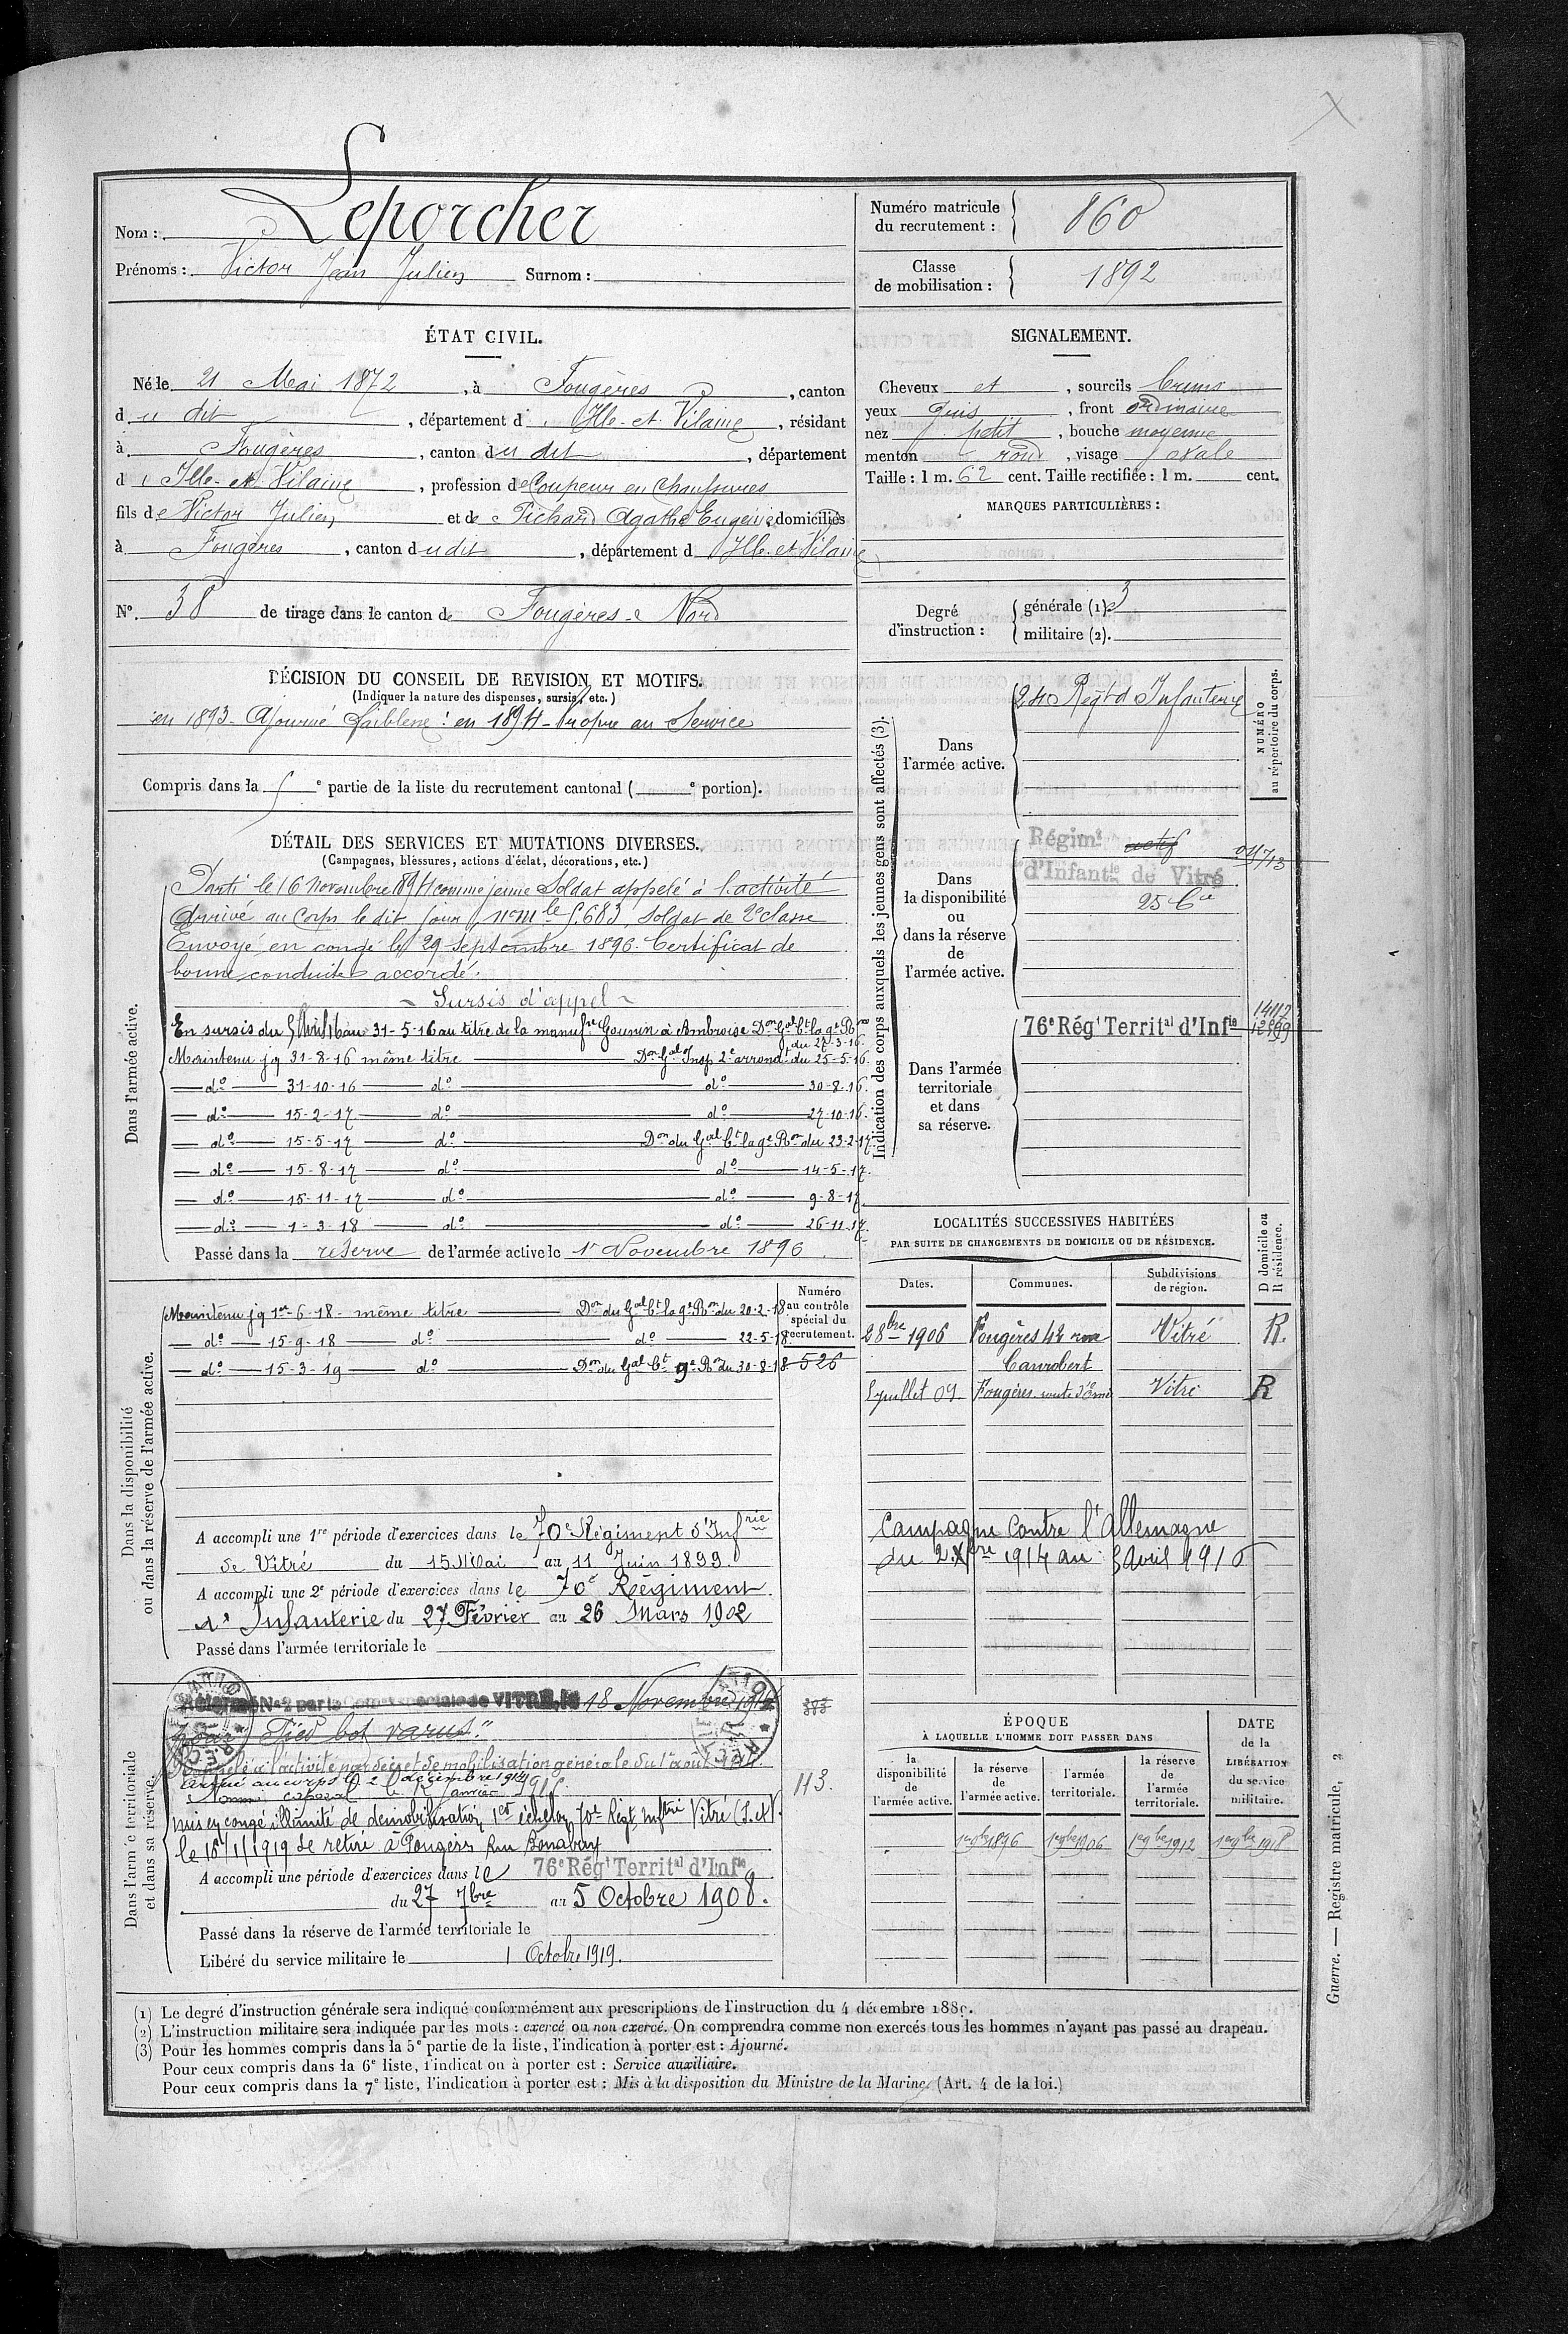 Nom : Leporcher
Prénoms : Victor Jean Julien Surnom :
Numéro matricule du recrutement : 860
Classe de mobilisation : 1892
ÉTAT CIVIL.
Né le 21 Mai 1872, à Fougères, canton
du dit, département d'Ille-et-Vilaine, résidant
à Fougères, canton du dit, département
d'Ille-et-Vilaine, profession de Coupeur en Chaussures
fils de Victor Julien et de Pichard Agathe Eugénie domiciliés
à Fougères, canton du dit, département d'Ille-et-Vilaine
N° 38 de tirage dans le canton de Fougères Nord
SIGNALEMENT.
Cheveux et, sourcils bruns
yeux gris, front ordinaire
nez petit, bouche moyenne
menton rond, visage ovale
Taille : 1 m. 62 cent. Taille rectifiée : 1 m. cent.
MARQUES PARTICULIÈRES :
Degré d'instruction : générale (1). 3
militaire (2).
DÉCISION DU CONSEIL DE REVISION ET MOTIFS.
(Indiquer la nature des dispenses, sursis, etc.)
en 1893. Ajourné faiblesse : en 1894 Propre au Service
Compris dans la e partie de la liste du recrutement cantonal ( e portion).
DÉTAIL DES SERVICES ET MUTATIONS DIVERSES.
(Campagnes, blessures, actions d'éclat, décorations, etc.)
Dans l'armée active.
Parti le 16 Novembre 1894 comme jeune Soldat appelé à l'activité
Arrivé au Corps le dit jour, n° mle 5.683, Soldat de 2e classe
Envoyé en congé le 29 Septembre 1896. Certificat de
bonne conduite accordé.
~ Sursis d'appel ~
En sursis du 5 Avril 16 au 31-5-16 au titre de la manufre Gounin à Amboise Don Gal Ct la 9e Ron
du 27-3-16
Maintenu jq 31-8-16 même titre Don Gal Insp 2e arrondt du 25-5-16.
do 31-10-16 do do 30-8-16.
do 15-2-17 do do 27-10-16.
do 15-5-17 do Don du Gal Ct la 9e Ron du 23-2-17.
do 15-8-17 do do 14-5-17.
do 15-11-17 do do 9-8-17
do 1-3-18 do do 26-11-17.
Passé dans la réserve de l'armée active le 1er Novembre 1896.
Indication des corps auxquels les jeunes gens sont affectés (3).
NUMÉRO au répertoire du corps.
Dans l'armée active.
24e Régt d'Infanterie
Dans la disponibilité ou dans la réserve de l'armée active.
Régimt actif
d'Infantie de Vitré
25 Cie
Dans l'armée territoriale et dans sa réserve.
76e Régt Territal d'Infie
LOCALITÉS SUCCESSIVES HABITÉES
PAR SUITE DE CHANGEMENTS DE DOMICILE OU DE RÉSIDENCE.
D domicile ou R résidence.
Dates. Communes. Subdivisions de région.
28bre 1906 Fougères 42 rue Canrobert Vitré R.
Juillet 09 Fougères route d'Ernée Vitré R
Campagne contre l'Allemagne
du 2 Xbre 1914 au 5 Avril 1916
Dans la disponibilité ou dans la réserve de l'armée active.
Numéro au contrôle spécial du recrutement.
526
Maintenu jq 1er-6-18 même titre Don du Gal Ct la 9e Ron du 20-2-18
do 15-9-18 do do 22-5-18.
do 15-3-19 do Don du Gal Ct 9e Ron du 30-8-18
A accompli une 1re période d'exercices dans le 70e Régiment d'Infrie
de Vitré du 15 Mai au 11 Juin 1899.
A accompli une 2e période d'exercices dans le 70e Régiment
d'Infanterie du 27 Février au 26 Mars 1902
Passé dans l'armée territoriale le
Dans l'armée territoriale et dans sa réserve.
Réformé No 2 par la Comon spéciale de VITRÉ, le 18 Novembre
pour "Pied bot varus."
Rappelé à l'activité par décret de mobilisation générale du 1er août 1914.
Arrivé au corps le 2 décembre 1914
Nommé caporal le janvier 1916.
113.
mis en congé illimité de démobilisation 1er échelon 70e Régt Inftrie Vitré
le 18/1/1919 se retire à Fougères Rue Bonabry
A accompli une période d'exercices dans le 76e Régt Territal d'Infie
du 27 7bre au 5 Octobre 1908.
Passé dans la réserve de l'armée territoriale le
Libéré du service militaire le 1 Octobre 1919.
ÉPOQUE
À LAQUELLE L'HOMME DOIT PASSER DANS
la disponibilité de l'armée active. la réserve de l'armée active. l'armée territoriale. la réserve de l'armée territoriale.
DATE de la LIBÉRATION du service militaire.
1er 9bre 1896 1er 9bre 1906 1er 9bre 1912 1er 9bre 1918
(1) Le degré d'instruction générale sera indiqué conformément aux prescriptions de l'instruction du 4 décembre 1889.
(2) L'instruction militaire sera indiquée par les mots : exercé ou non exercé. On comprendra comme non exercés tous les hommes n'ayant pas passé au drapeau.
(3) Pour les hommes compris dans la 5e partie de la liste, l'indication à porter est : Ajourné.
Pour ceux compris dans la 6e liste, l'indication à porter est : Service auxiliaire.
Pour ceux compris dans la 7e liste, l'indication à porter est : Mis à la disposition du Ministre de la Marine. (Art. 4 de la loi.)
Guerre. — Registre matricule,